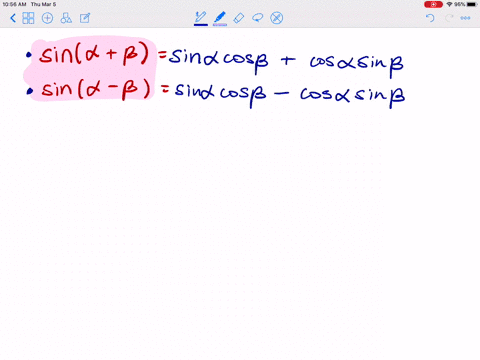 10:56 AM Thu Mar 5 95%
• sin(α + β) = sinα cosβ + cosα sinβ
• sin(α - β) = sinα cosβ - cosα sinβ